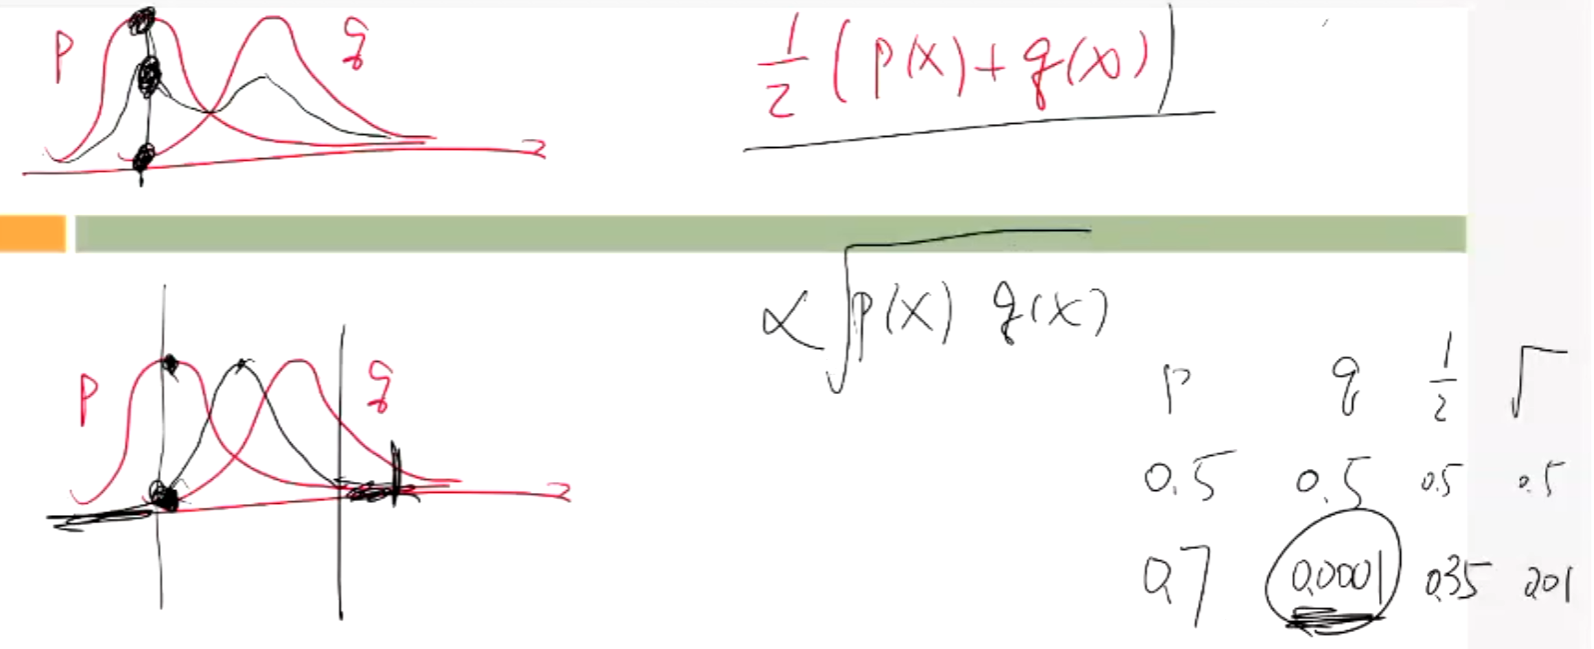 p q
1/2 (p(x) + q(x))
∝ √p(x) q(x)
p q
p q 1/2 √
0.5 0.5 0.5 0.5
0.7 0.0001 0.35 0.01